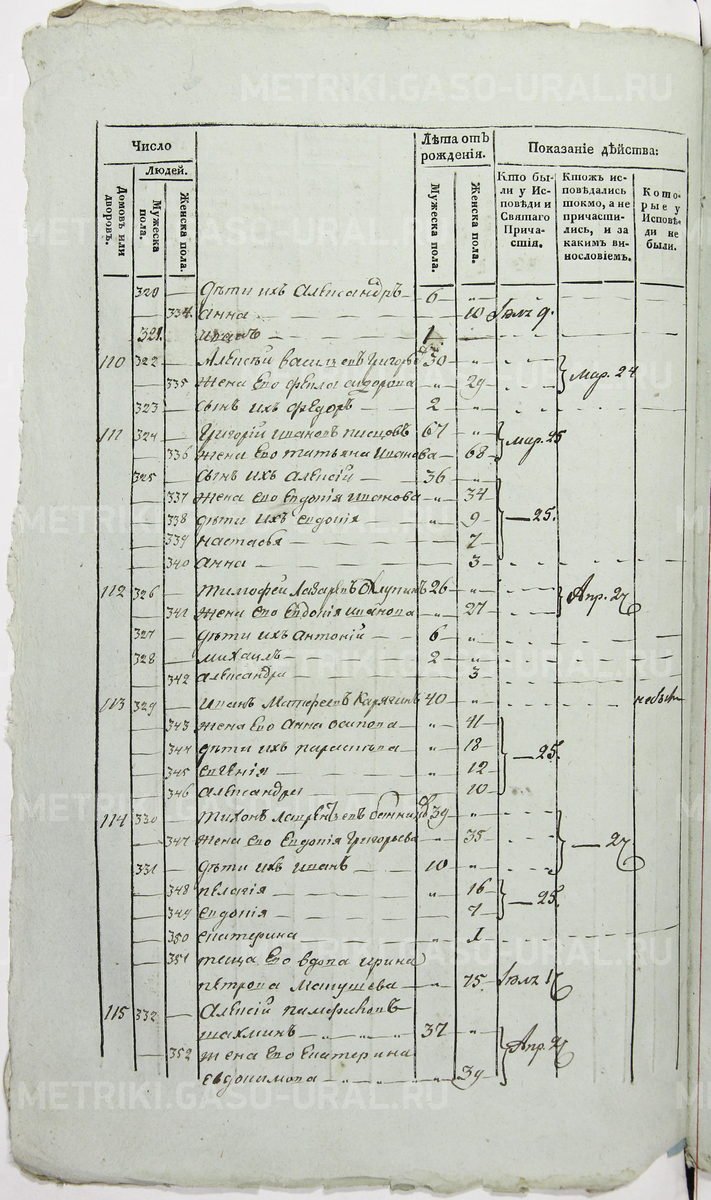 METRIKI.GASO-URAL.RU
Число
Людей.
Домовъ или дворовъ.
Мужеска пола.
Женска пола.
Лѣта отъ рожденія.
Мужеска пола.
Женска пола.
Показаніе дѣйства:
Кто были у Исповѣди и Святаго Причастія.
Ктожъ исповѣдались токмо, а не причастились, и за какимъ винословіемъ.
Которые у Исповѣди не были.
320 дѣти ихъ Александръ 6
334 Анна 10 9.
321 Иванъ 1
110 322 Алексѣй Васильевъ 30
335 жена его Фекла Сидорова 29 Мар. 24
323 сынъ ихъ Федоръ 2
111 324 Григорій Ивановъ Писцовъ 67 Мар. 25
336 жена его Татьяна Иванова 68
325 сынъ ихъ Алексій 36
337 жена его Евдокія Иванова 34
338 дѣти ихъ Евдокія 9 25.
339 Настасья 7
340 Анна 3
112 326 Тимофей Лазаревъ 26 Апр. 27
341 жена его Евдокія Иванова 27
327 дѣти ихъ Антоній 6
328 Михаилъ 2
342 Александра 3
113 329 Иванъ Матфеевъ Карягинъ 40
343 жена его Анна Осипова 41
344 дѣти ихъ Параскева 18 25.
345 Евгенія 12
346 Александра 10
114 330 Тихонъ 39
347 жена его Евдокія Григорьева 35
331 дѣти ихъ Иванъ 10 27
348 Пелагія 16 25.
349 Евдокія 7
350 Екатерина 1
351 теща его вдова Ирина
Петрова Матушева 75
115 332 Алексій Памфиловъ
Шахминъ 37
352 жена его Екатерина Апр.
Евдокимова 39